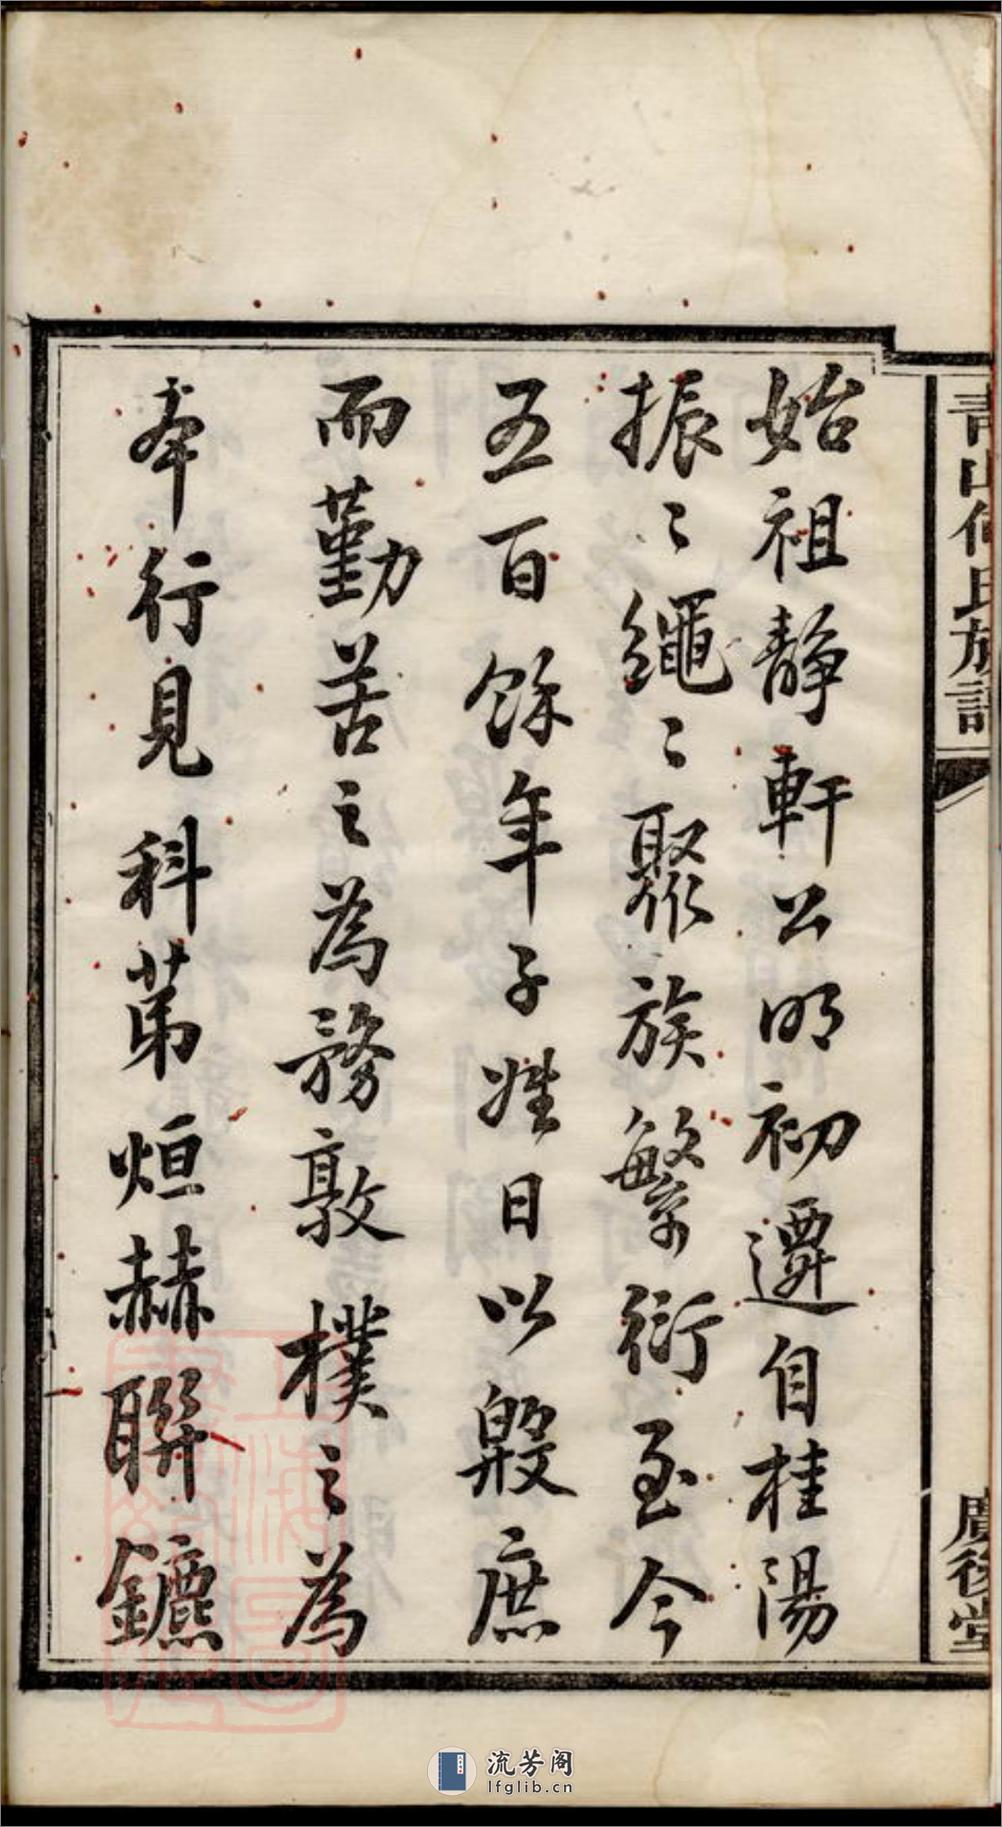 青山何氏族譜
廣後堂
始祖靜軒公明初遷自桂陽
振〻繩〻聚族繁衍至今
五百餘年子姓日以殷庶
而勤苦之為務敦樸之為
本行見科苐烜赫聯鑣
流芳阁
lfglib.cn